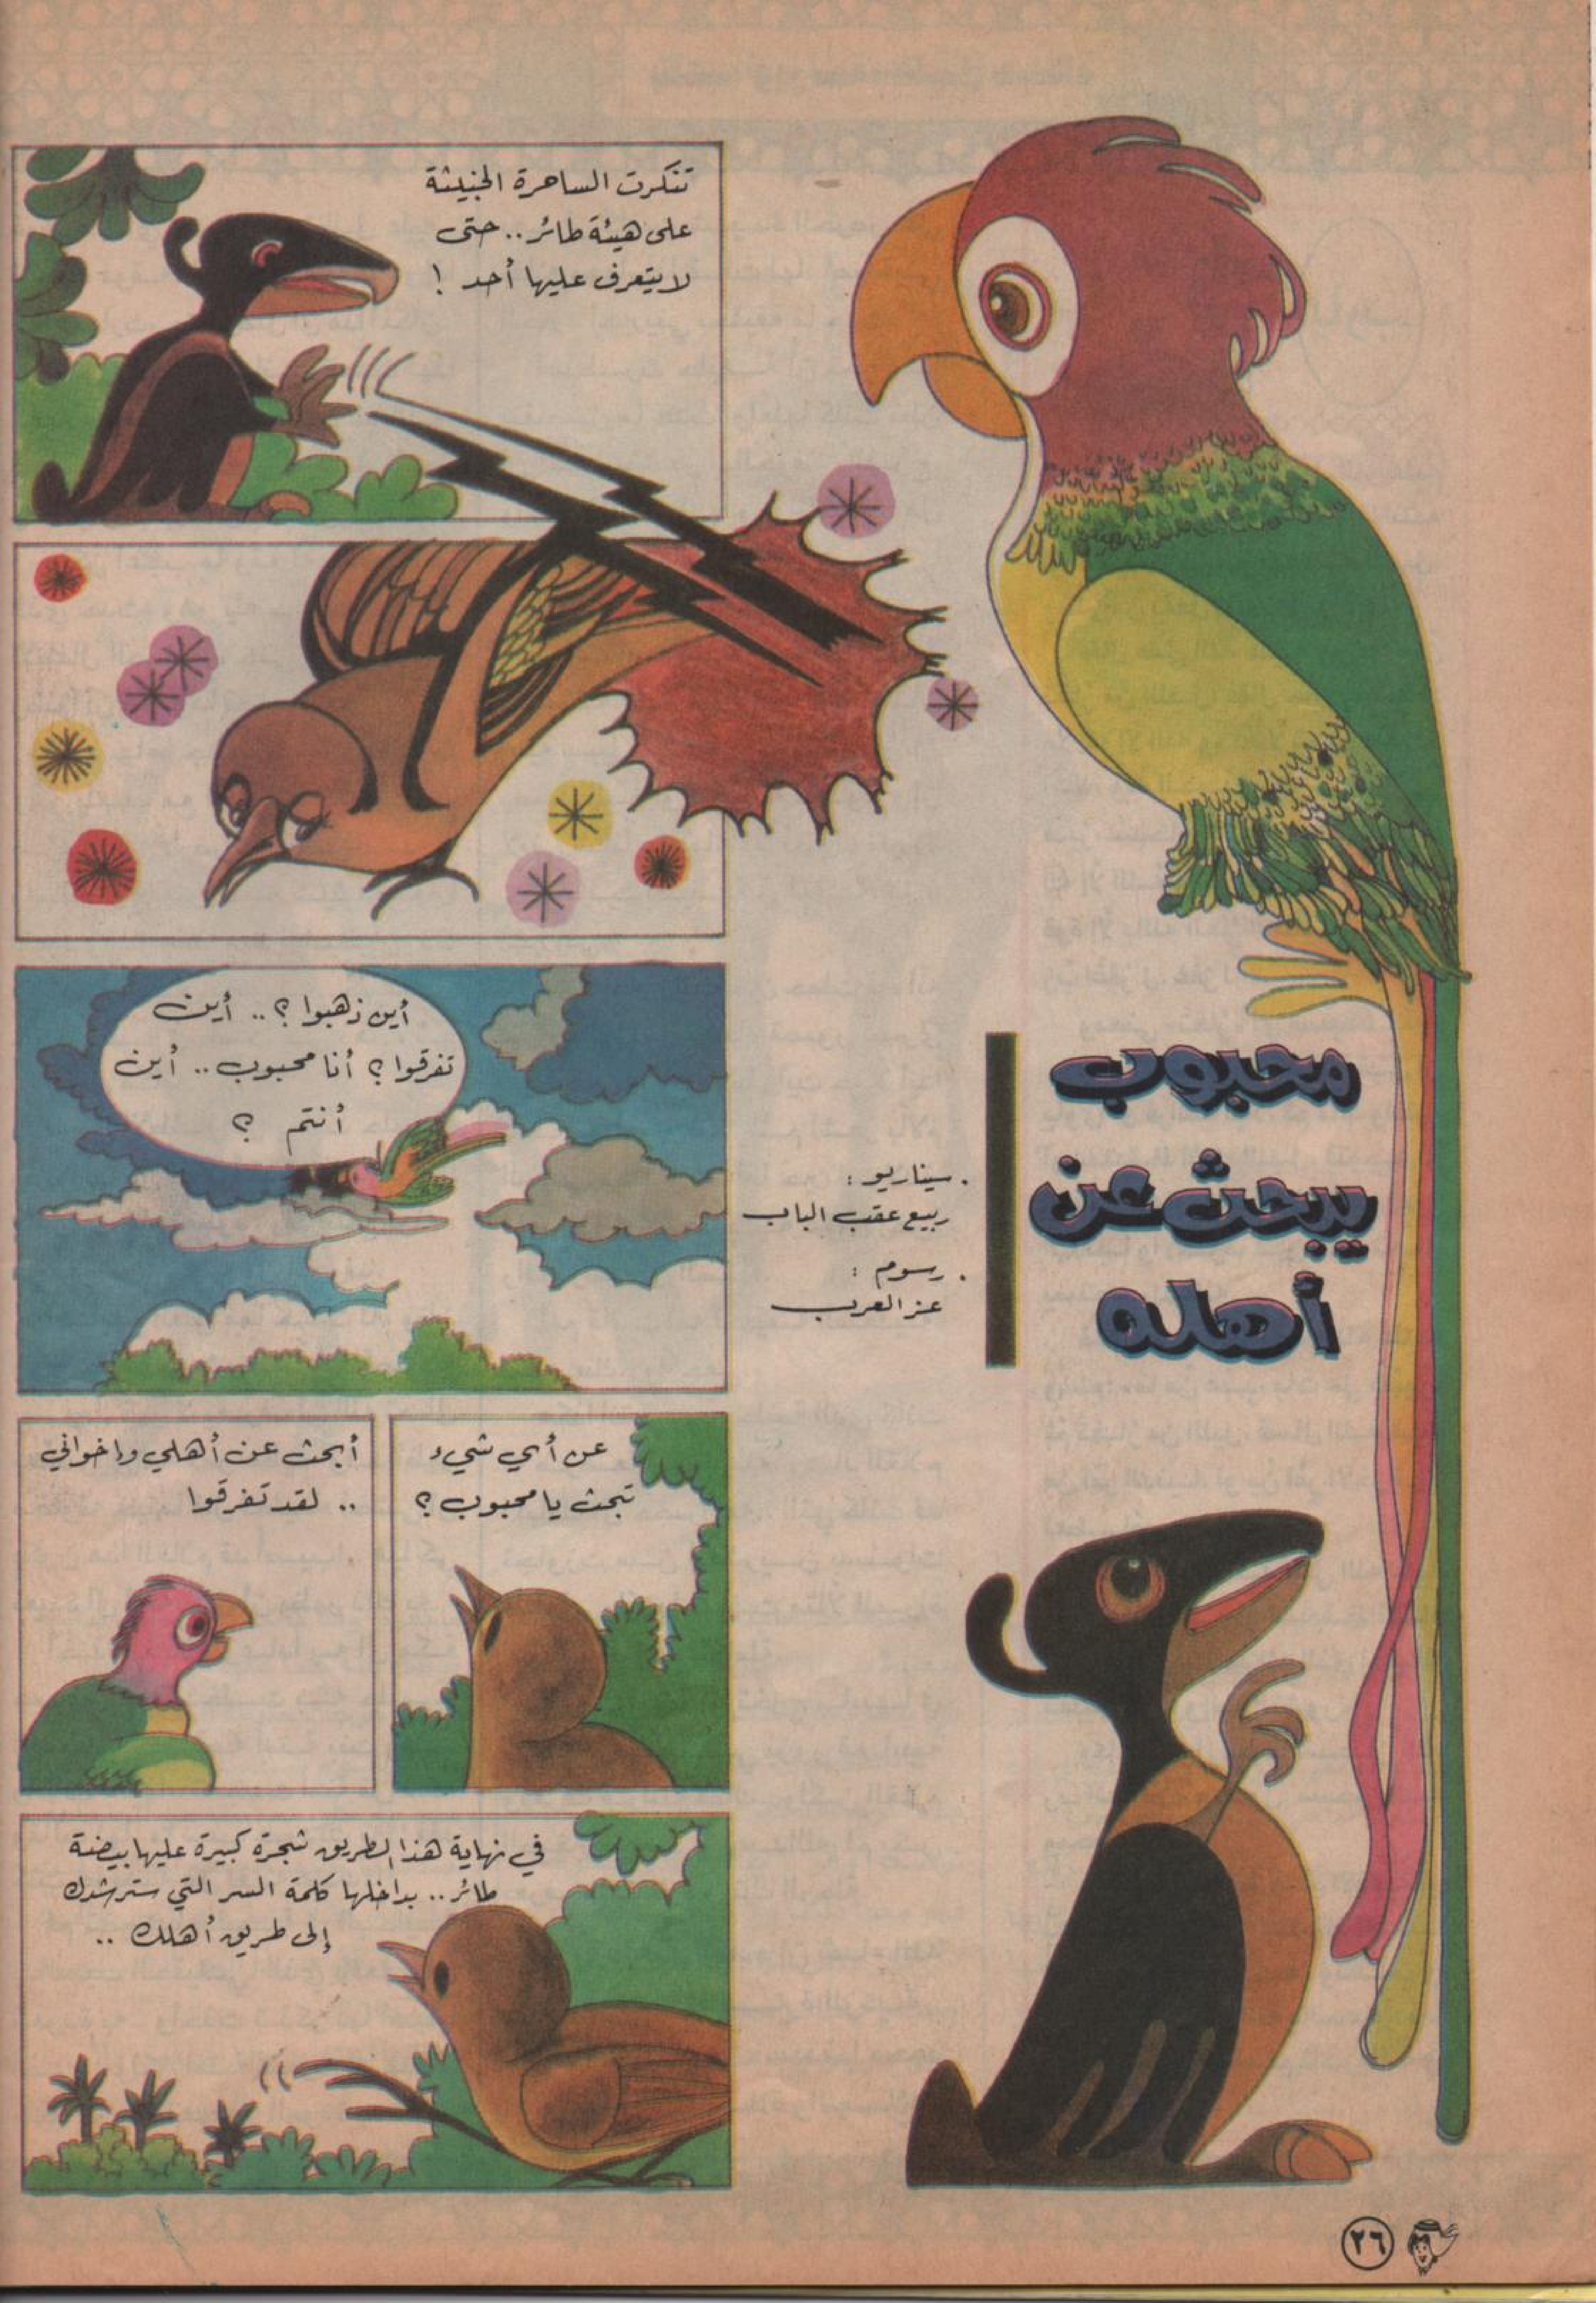 محبوب
يبحث عن
أهله
. سيناريو :
ربيع عقب الباب
. رسوم :
عز العرب
تنكرت الساحرة الخبيثة
على هيئة طائر .. حتى
لا يتعرف عليها أحد !
أين ذهبوا ؟ .. أين
تفرقوا ؟ أنا محبوب .. أين
أنتم ؟
عن أي شيء
تبحث يا محبوب ؟
أبحث عن أهلي وإخواني
.. لقد تفرقوا
في نهاية هذا الطريق شجرة كبيرة عليها بيضة
طائر .. بداخلها كلمة السر التي سترشدك
إلى طريق أهلك ..
٢٦